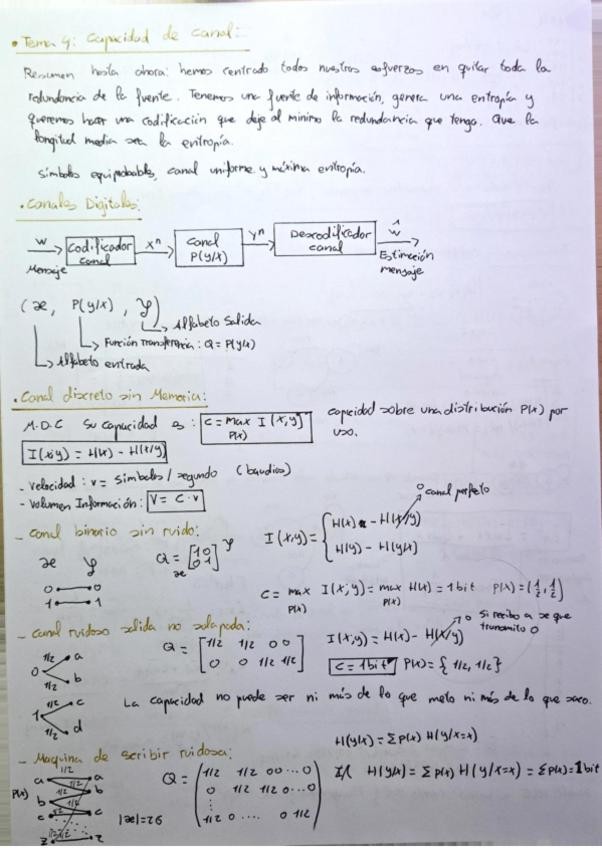 • Tema 4: Capacidad de canal:
Resumen hasta ahora: hemos centrado todos nuestros esfuerzos en quitar toda la
redundancia de la fuente. Tenemos una fuente de información, genera una entropía y
queremos hacer una codificación que deje al minimo la redundancia que tenga. Que la
longitud media sea la entropía.
Símbolos equiprobables, canal uniforme y máxima entropía.
• Canales Digitales:
W → Codificador canal → Xⁿ → Canal P(y/x) → Yⁿ → Descodificador canal → Ŵ
Mensaje
Estimación mensaje
(æ, P(y/x), y)
Alfabeto Salida
Función transferencia: Q = P(y/x)
Alfabeto entrada
• Canal discreto sin Memoria:
M.D.C su capacidad es: C = max I(x,y) P(x) capacidad sobre una distribución P(x) por
uso.
I(x;y) = H(x) - H(x/y)
- Velocidad: v = Símbolos / segundo (baudios)
- Volumen Información: V = C · v
- Canal binario sin ruido:
æ y
0 0
1 1
Q = [1 0
0 1] y
æ
I(x,y) = { H(x) - H(x/y)
H(y) - H(y/x)
0 canal perfecto
C = max I(x;y) = max H(x) = 1 bit P(x) = (1/2, 1/2)
P(x) P(x)
- Canal ruidoso salida no solapada:
0 1/2 a
1/2 b
1 1/2 c
1/2 d
Q = [1/2 1/2 0 0
0 0 1/2 1/2]
I(x;y) = H(x) - H(x/y)
0 Si recibo a se que
transmito 0
C = 1 bit P(x) = {1/2, 1/2}
La capacidad no puede ser ni más de lo que meto ni más de lo que saco.
- Maquina de escribir ruidosa:
H(y/x) = Σ P(x) H(y/x=x)
P(x)
a 1/2 a
b 1/2 b
c c
z z
|æ| = 26
Q = (1/2 1/2 0 0 ... 0
0 1/2 1/2 0 ... 0
⋮
1/2 0 .... 0 1/2)
H(y/x) = Σ P(x) H(y/x=x) = Σ P(x) = 1 bit